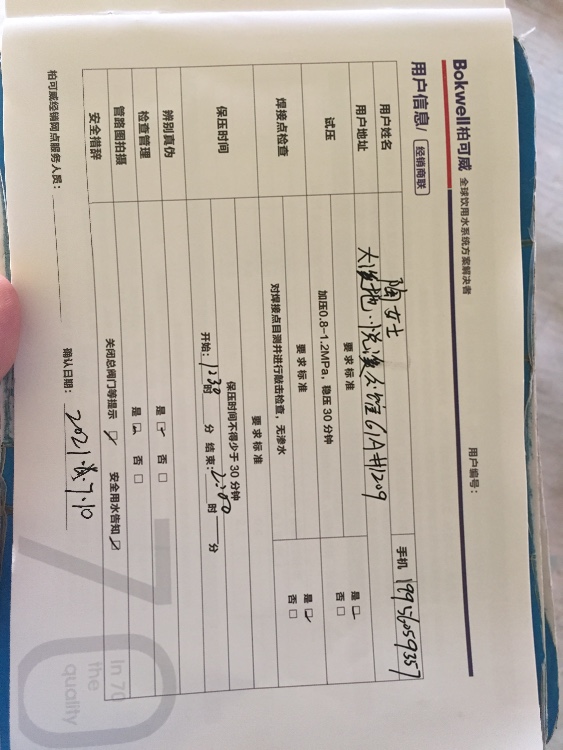 Bokwell柏可威 全球饮用水系统方案解决者
用户编号：
用户信息/ 经销商联
用户姓名 陶女士 手机 19956059357
用户地址 61A#1209
试压 要求标准
加压0.8-1.2MPa，稳压 30 分钟 是 否
焊接点检查 要求标准
对焊接点目测并进行敲击检查，无渗水 是 否
保压时间 要求标准
保压时间不得少于 30 分钟
开始：1230 时 分 结束：2:00 时 分
辨别真伪 是 否
检查管理 是 否
管路图拍摄
安全措辞 关闭总阀门等提示 安全用水告知
柏可威经销网点服务人员： 确认日期：2021.7.10
In 70
the
quality